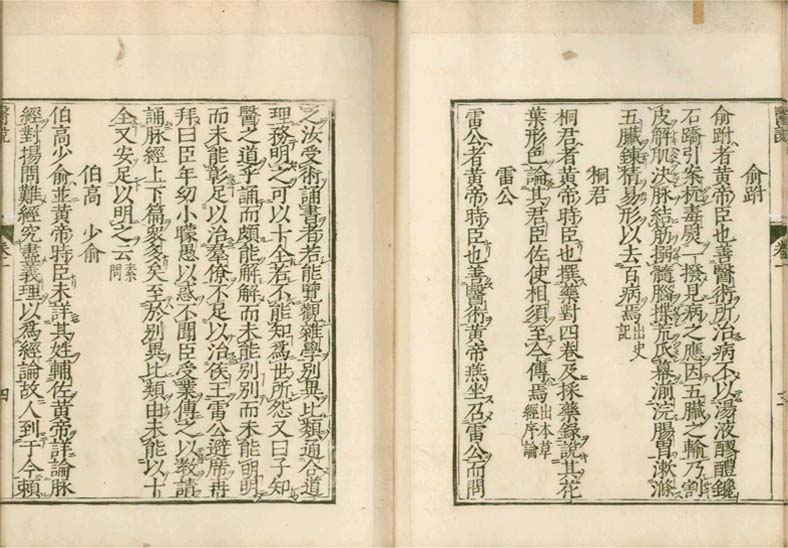 俞跗
俞跗者黃帝臣也善醫術所治病不以湯液醪醴鑱
石蹻引案杭毒熨一撥見病之應因五臟之輸乃割
皮解肌決脉結筋搦髓腦揲荒爪幕湔浣腸胃漱滌
五臟鍊精易形以去百病焉出史記
桐君
桐君者黃帝時臣也撰藥對四卷及採藥錄說其花
葉形色論其君臣佐使相須至今傳焉出本草經序論
雷公
雷公者黃帝時臣也善醫術黃帝燕坐召雷公而問
之汝受術誦書者若能覽觀雜學別異比類通合道
理務明之可以十全若不能知為世所怨又曰子知
醫之道乎誦而頗能解解而未能別別而未能明明
而未能彰足以治羣僚不足以治侯王雷公避席再
拜曰臣年幼小矇愚以惑不聞臣受業傳之以教請
誦脉經上下篇眾多矣至於別異比類由未能以十
全又安足以明之云素問
伯高 少俞
伯高少俞並黃帝時臣未詳其姓輔佐黃帝詳論脉
經對揚問難經究盡義理以為經論故人到于今賴
醫說 卷一 四